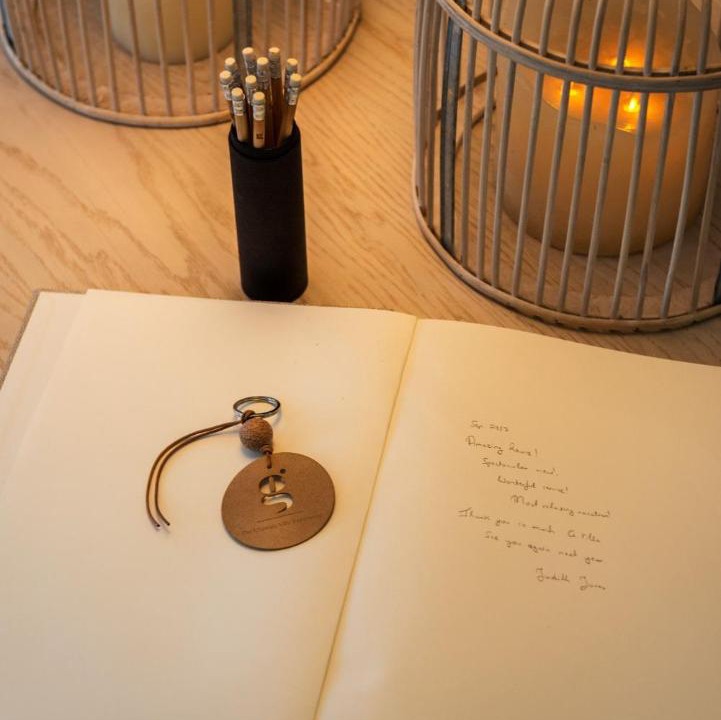 g
Sep 2023
Amazing house!
Spectacular view!
Wonderful service!
Most relaxing vacation!
Thank you so much
See you again next year
Judith Jones